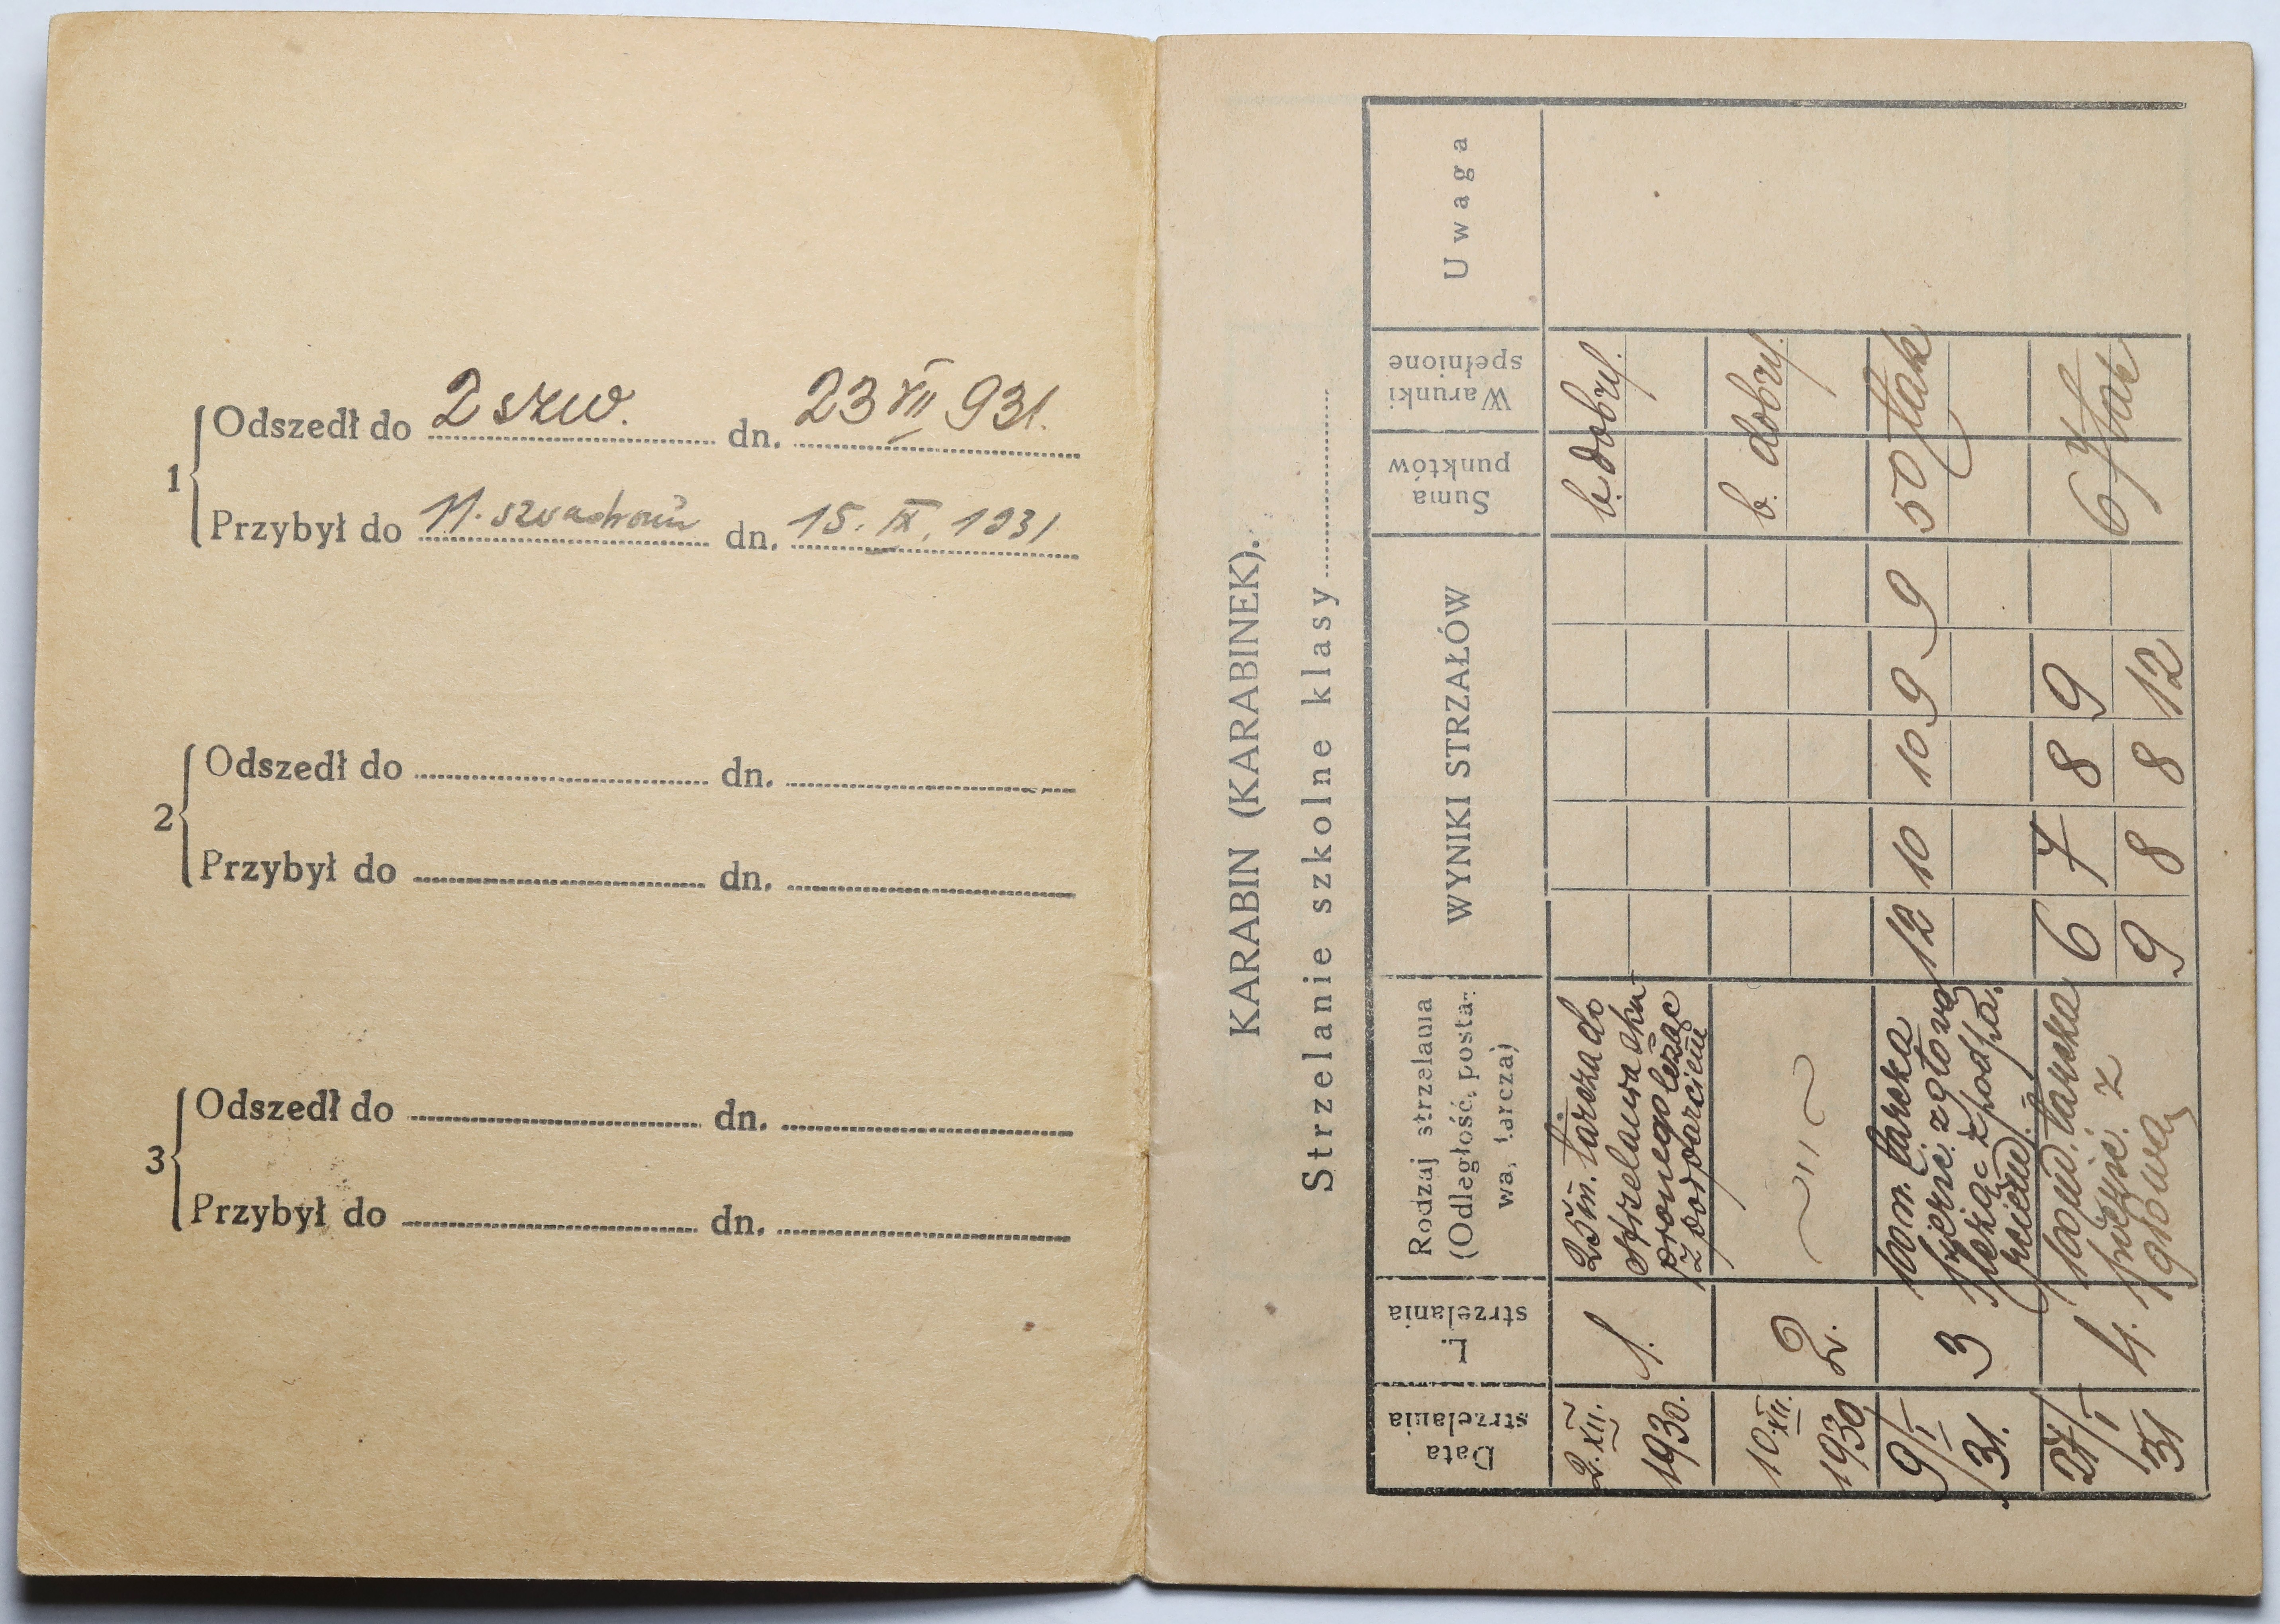 1
Odszedł do 2 szw. dn. 23 VII 931.
Przybył do 11. szwadronu dn. 15. IX. 1931
2
Odszedł do dn.
Przybył do dn.
3
Odszedł do dn.
Przybył do dn.
KARABIN (KARABINEK).
Strzelanie szkolne klasy
Data strzelania
L. strzelania
Rodzaj strzelania
(Odległość, posta-
wa, tarcza)
WYNIKI STRZAŁÓW
Suma punktów
Warunki spełnione
Uwaga
2. XII. 1930.
1.
25 m. tarcza do
strzelania sku-
pionego leżąc
z podparciem
b. dobry.
10. XII. 1930
2.
~ " ~
b. dobry.
9/I 31.
3
100 m. tarcza
pierść z głową
leżąc z podpa.
rciem.
12 10 10 9 9
50 tak
27/I 31
4.
100 m. tarcza
pierść z
głową
6 7 8 9
9 8 8 12
67 tak